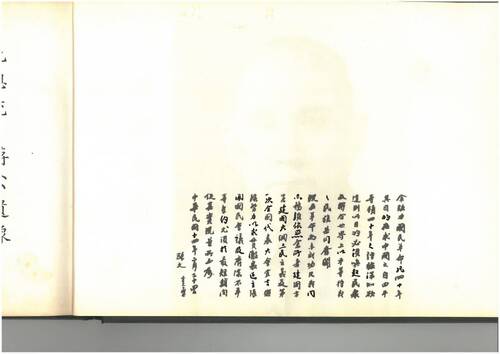 余致力國民革命凡四十年
其目的在求中國之自由平
等積四十年之經驗深知欲
達到此目的必須喚起民衆
及聯合世界上以平等待我
之民族共同奮鬥
現在革命尚未成功凡我同
志務須依照余所著建國方
略建國大綱三民主義及第
一次全國代表大會宣言繼
續努力以求貫澈最近主張
開國民會議及廢除不平
等條約尤須於最短期間
促其實現是所至囑
中華民國十四年二月二十四日
孫文
遺像